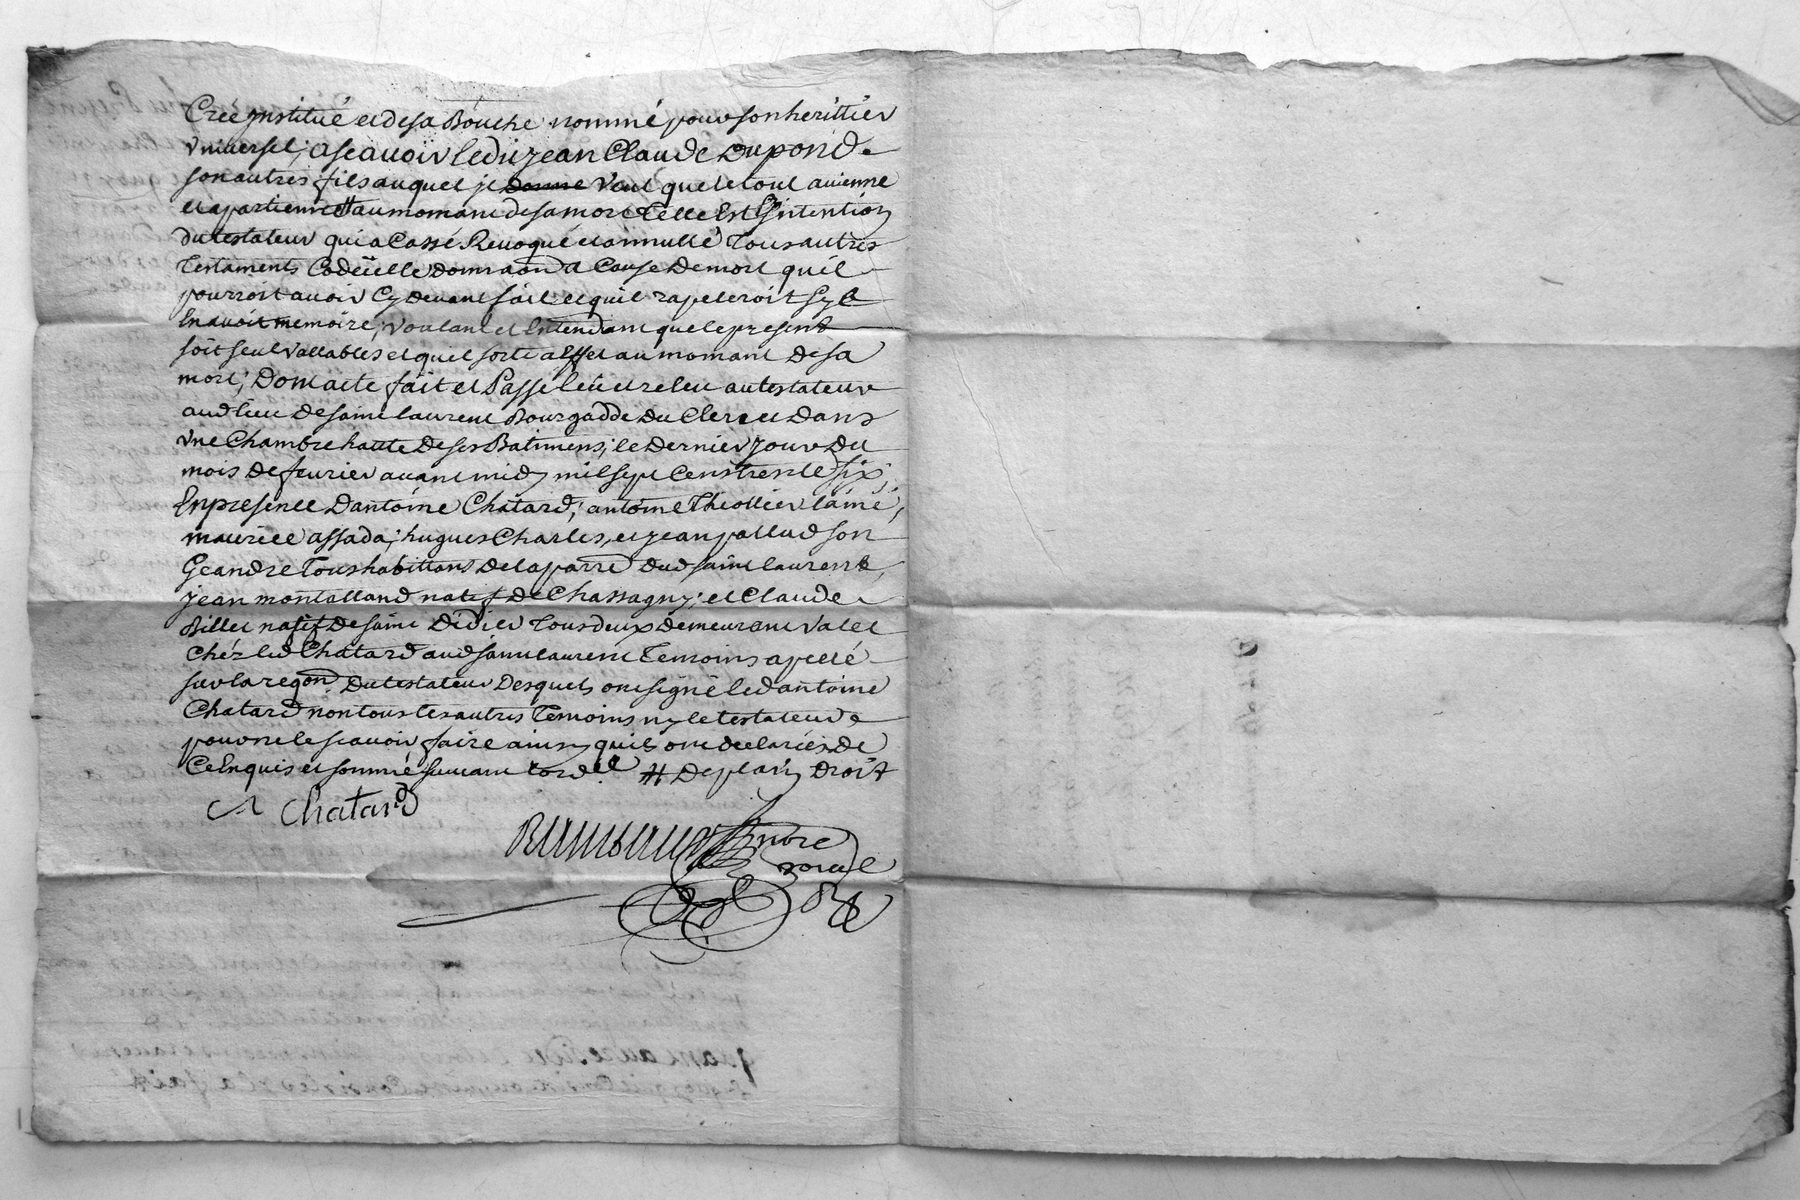 Creé institué et de sa Bouche nommé pour son herittier
vniuersel, ascauoir ledit jean Claude Dupond
son autres fils auquel il donne veut que le tout auienne
et apartienne # au momant de sa mort telle Est Lintention
du testateur qui a Cassé Reuoqué et annullé tous autres
testaments Codeiielle donnaõn a Cause de mort quil
pourroit auoir Cy deuant fait et quil rapeleroit Syl
En auoit memoire, voulant et Entendant que le present
soit seul vallables et quil sorte a Effet au momant de sa
mort; Dont acte fait et Passé leu et releu au testateur
aud lieu de saint laurent Bourgadde du Clerc et dans
vne Chambre haute de ses Batimens, le dernier jour du
mois de feurier auant midy mil sept Cens trente six,
En presence dantoine Chatard, antoine Theollier lainé,
maurice assada, hugues Charles, et jean pallud son
Geandre tous habittans de la parre dud saint laurent,
jean montalland natif de Chassagny, et Claude
Billet natif de saint didier tous deux demeurant valet
Chéz led Chatard aud saint laurent temoins apellé
sur la reqon du testateur desquels ont signé led antoine
Chatard non tous les autres temoins ny le testateur
pour ne le scauoir faire ainsy quils ont declarées de
Ce Enquis et sommé suiuant lord.ce # De plain Droit
A Chatard
notre
royal